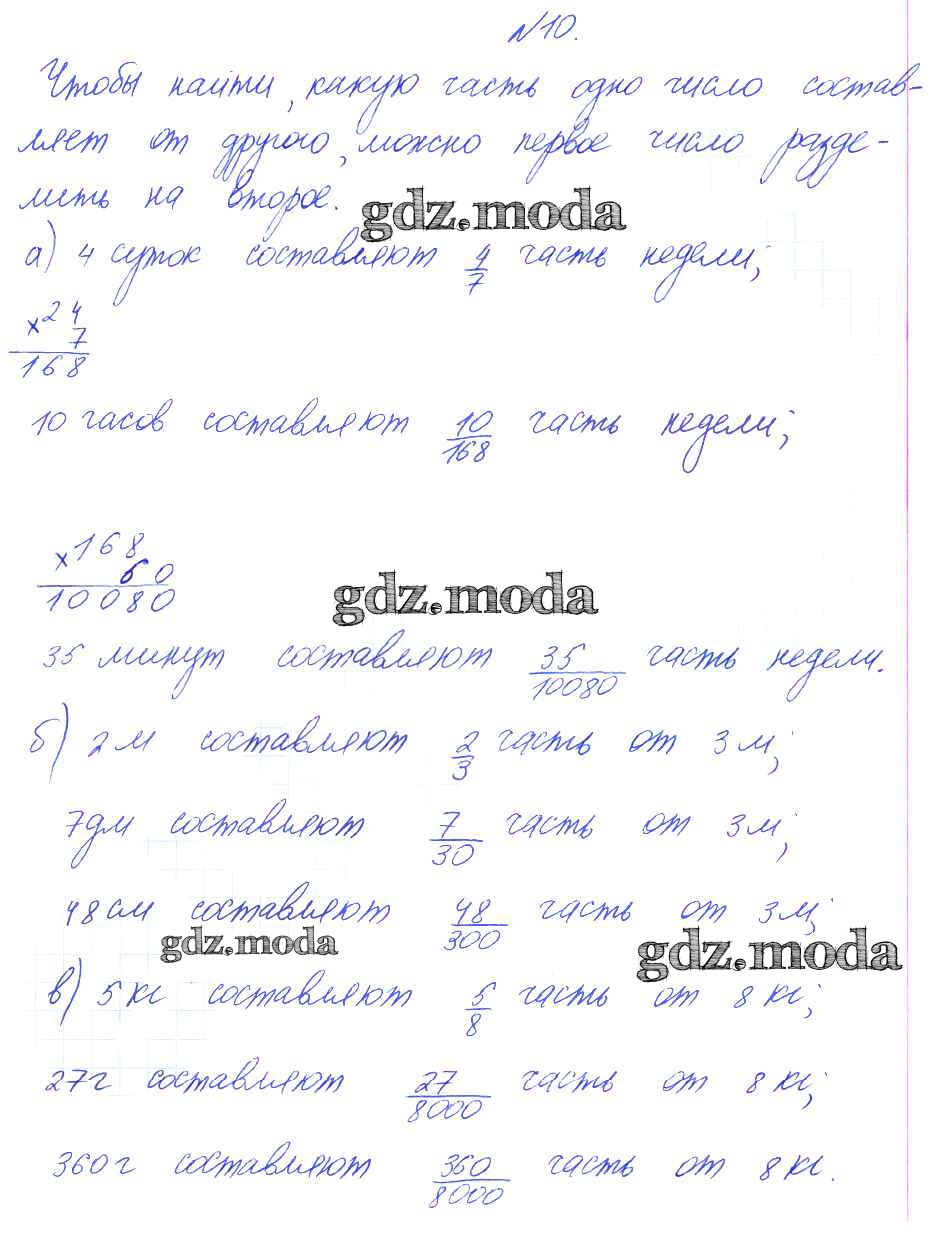 №10.
Чтобы найти, какую часть одно число состав-
ляет от другого, можно первое число разде-
лить на второе.
gdz.moda
а) 4 суток составляют 4/7 часть недели;
×24
7
168
10 часов составляют 10/168 часть недели;
×168
60
10080
gdz.moda
35 минут составляют 35/10080 часть недели.
б) 2 м составляют 2/3 часть от 3 м;
7 дм составляют 7/30 часть от 3 м;
48 см составляют 48/300 часть от 3 м;
gdz.moda
gdz.moda
в) 5 кг составляют 5/8 часть от 8 кг;
27 г составляют 27/8000 часть от 8 кг;
360 г составляют 360/8000 часть от 8 кг.